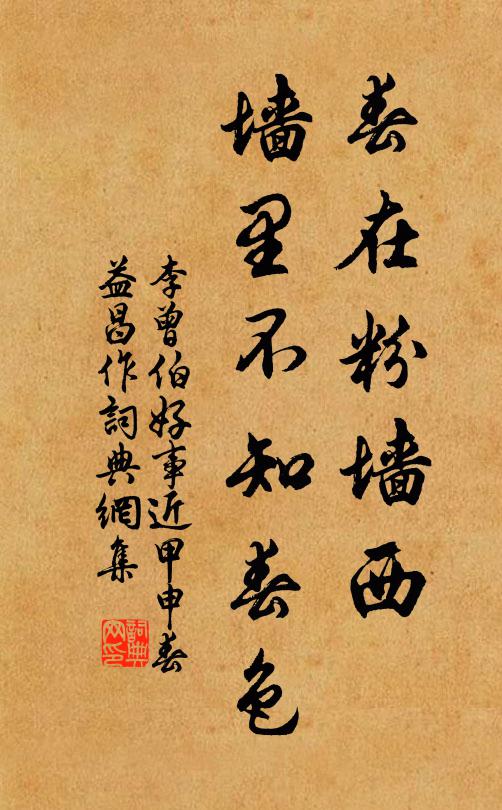 春在粉墙西
墙里不知春色
李曾伯好事近甲申春
益昌作詞典網集
詞典
网印